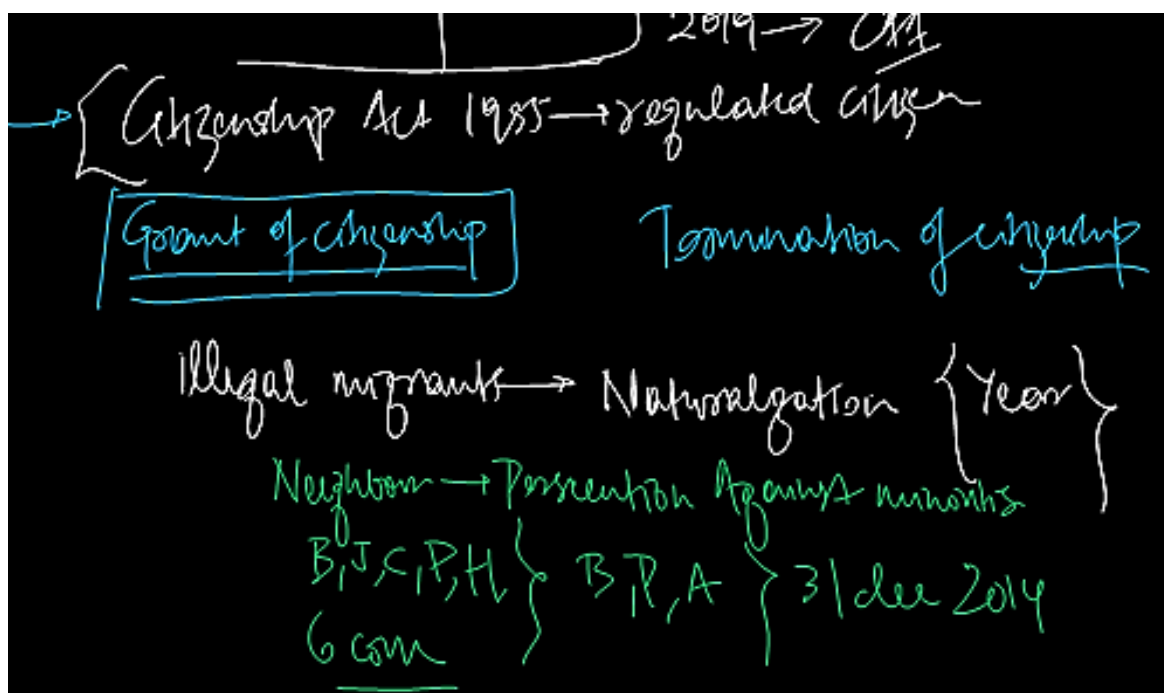 2019 → CAA
Citizenship Act 1955 → regulated citizen
Grant of citizenship Termination of citizenship
Illegal migrants → Naturalization {Year}
Neighbour → Persecution Against minorities
B, J, C, P, H } B, P, A } 31 dec 2014
6 com